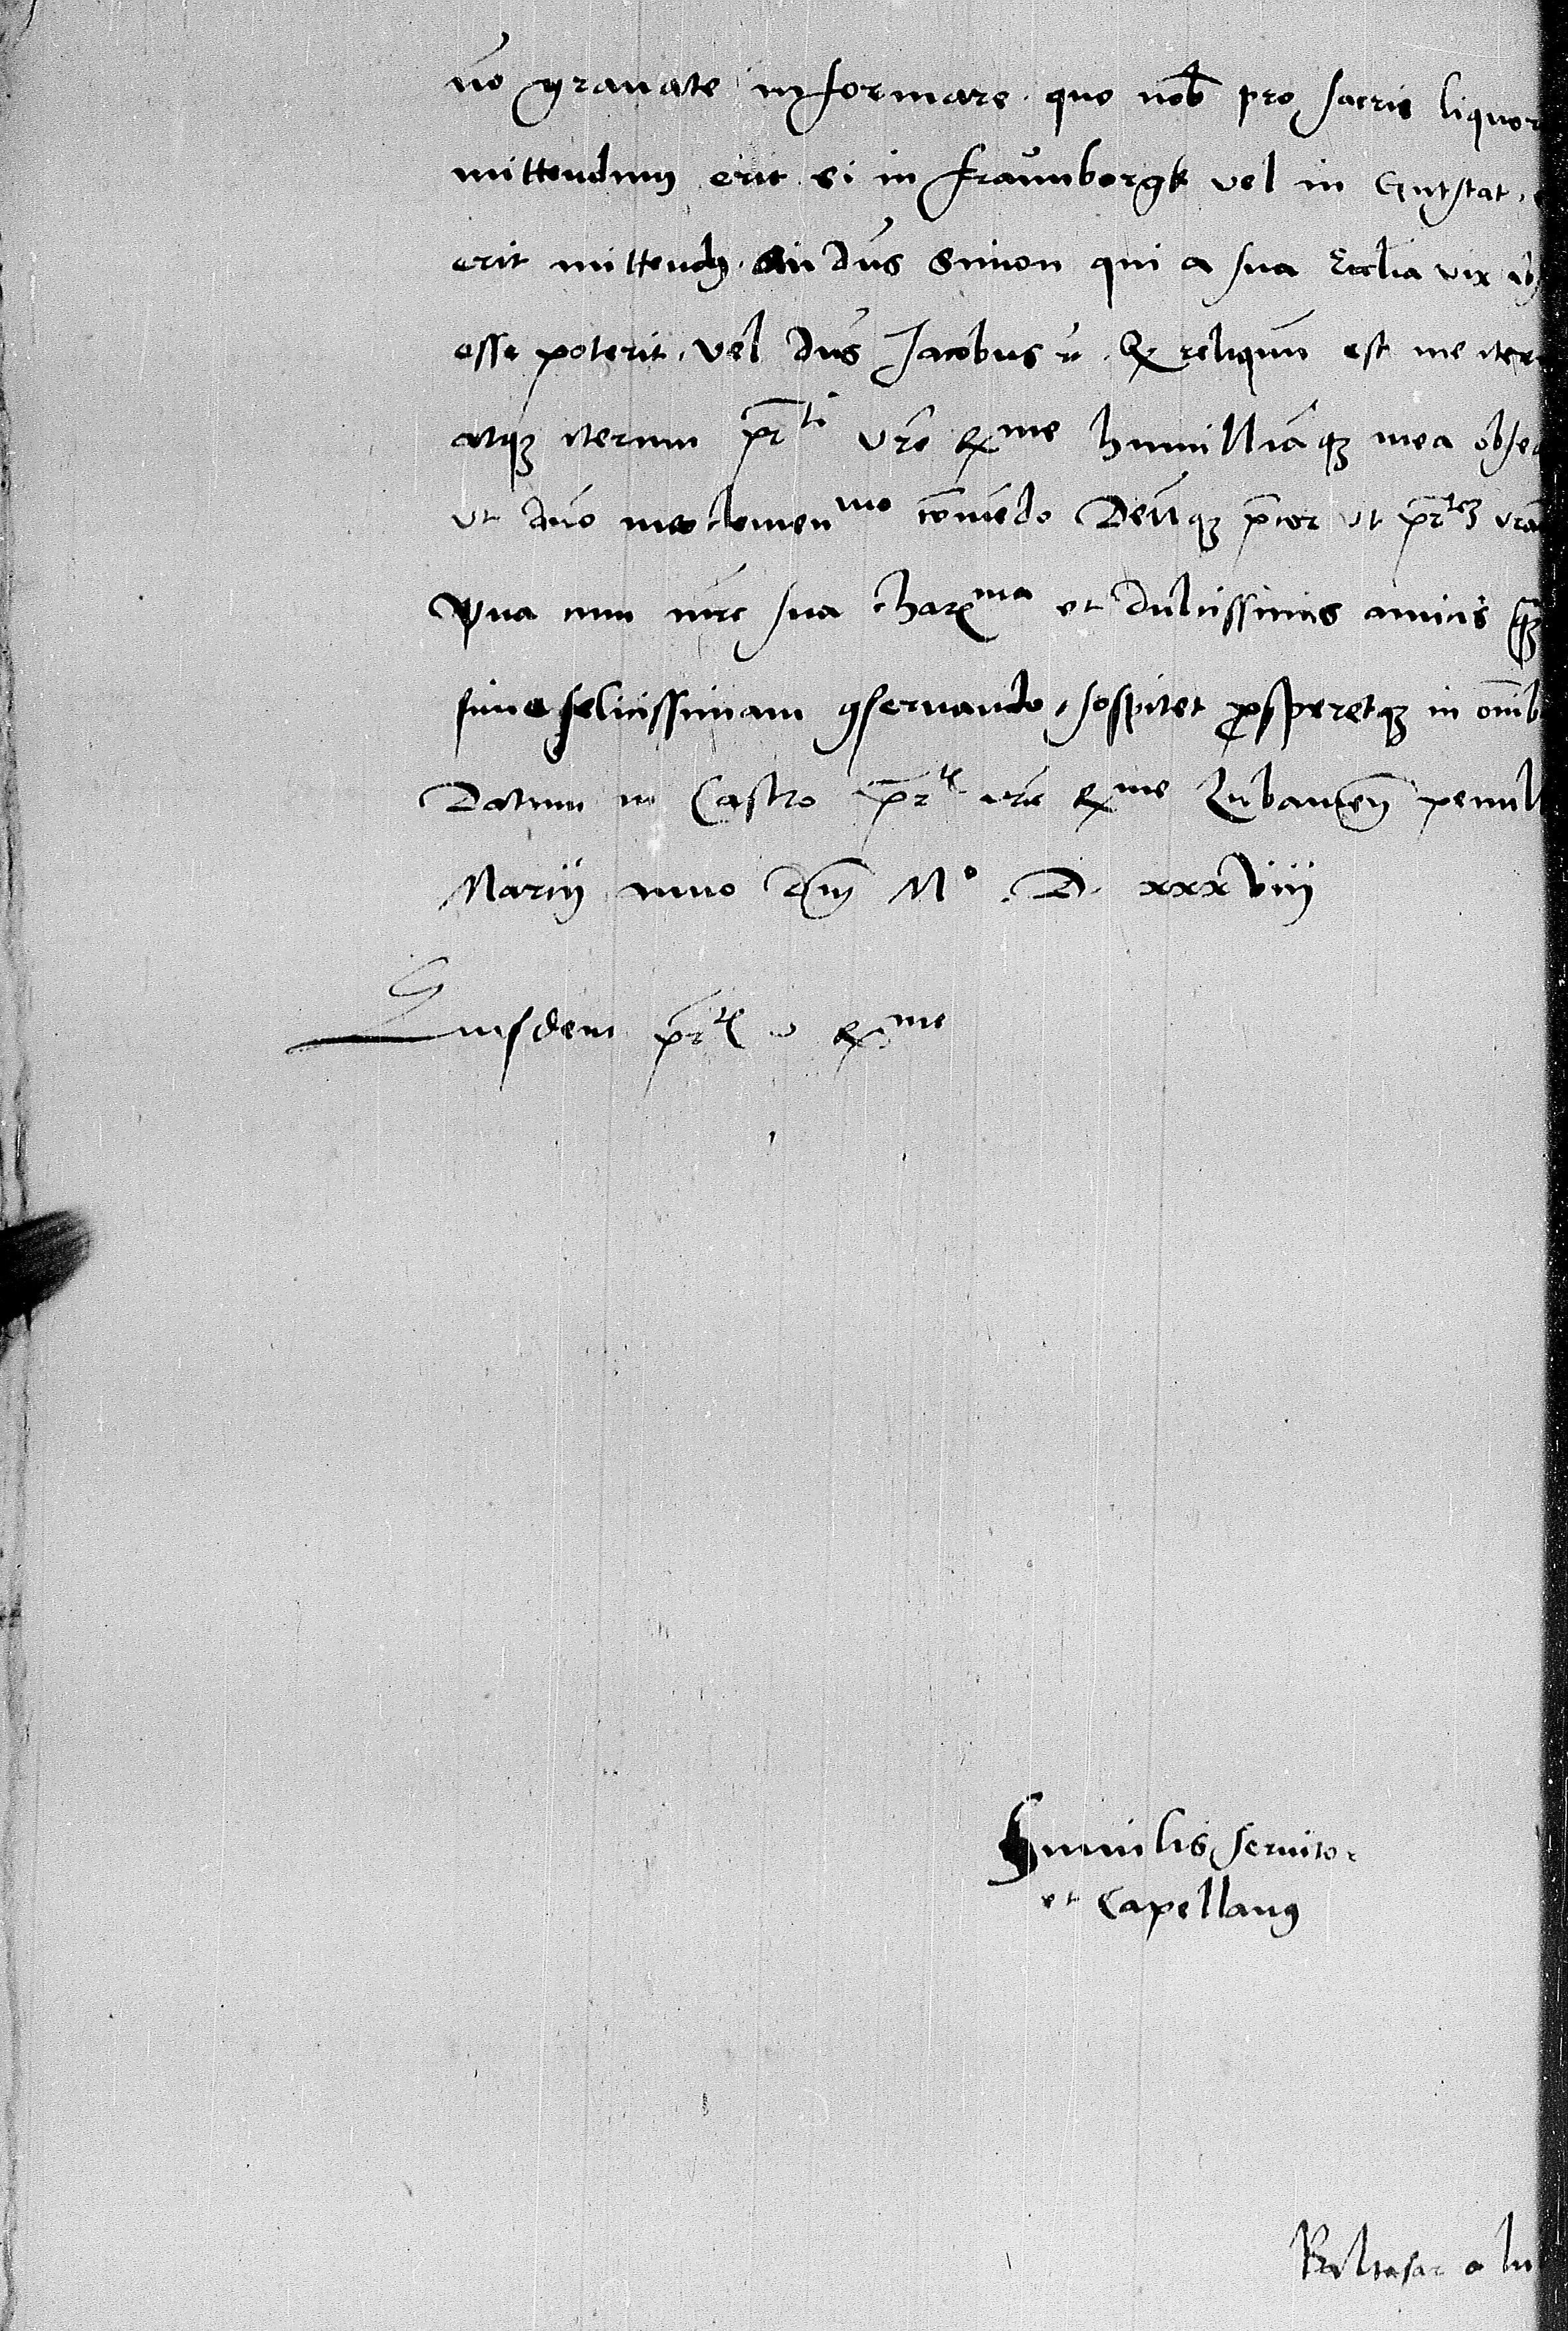 nō gravate informare quo nob̄ pro sacris liquor
mittendum erit si in fraŭnborgk vel in Gutstat
erit mittendꝰ an dn̄s Simon qui a sua Eccl̄ia vix ab
esse poterit, vel dn̄s Jacobus Qđ reliquū est me iter
atqȝ iterum pr̄ti vr̄e Rme humilliāqȝ mea obse
ut dn̄o meo clemenmo cōmēdo Deūqȝ p̄cor ut pr̄tem vrā
Una cum mr̄e sua charma et dulcissimis amicis
sine felicissimam ꝯservando, sospitet ꝓsperetqȝ in omīb
Datum in Castro pr̄tis vr̄e Rme Lubamen̄ penul
Marcij anno Dnj Mº D xxxviij
Eiusdem pr̄tis v Rme
Humilis servitor
et Capellanꝰ
Baltasar a lu